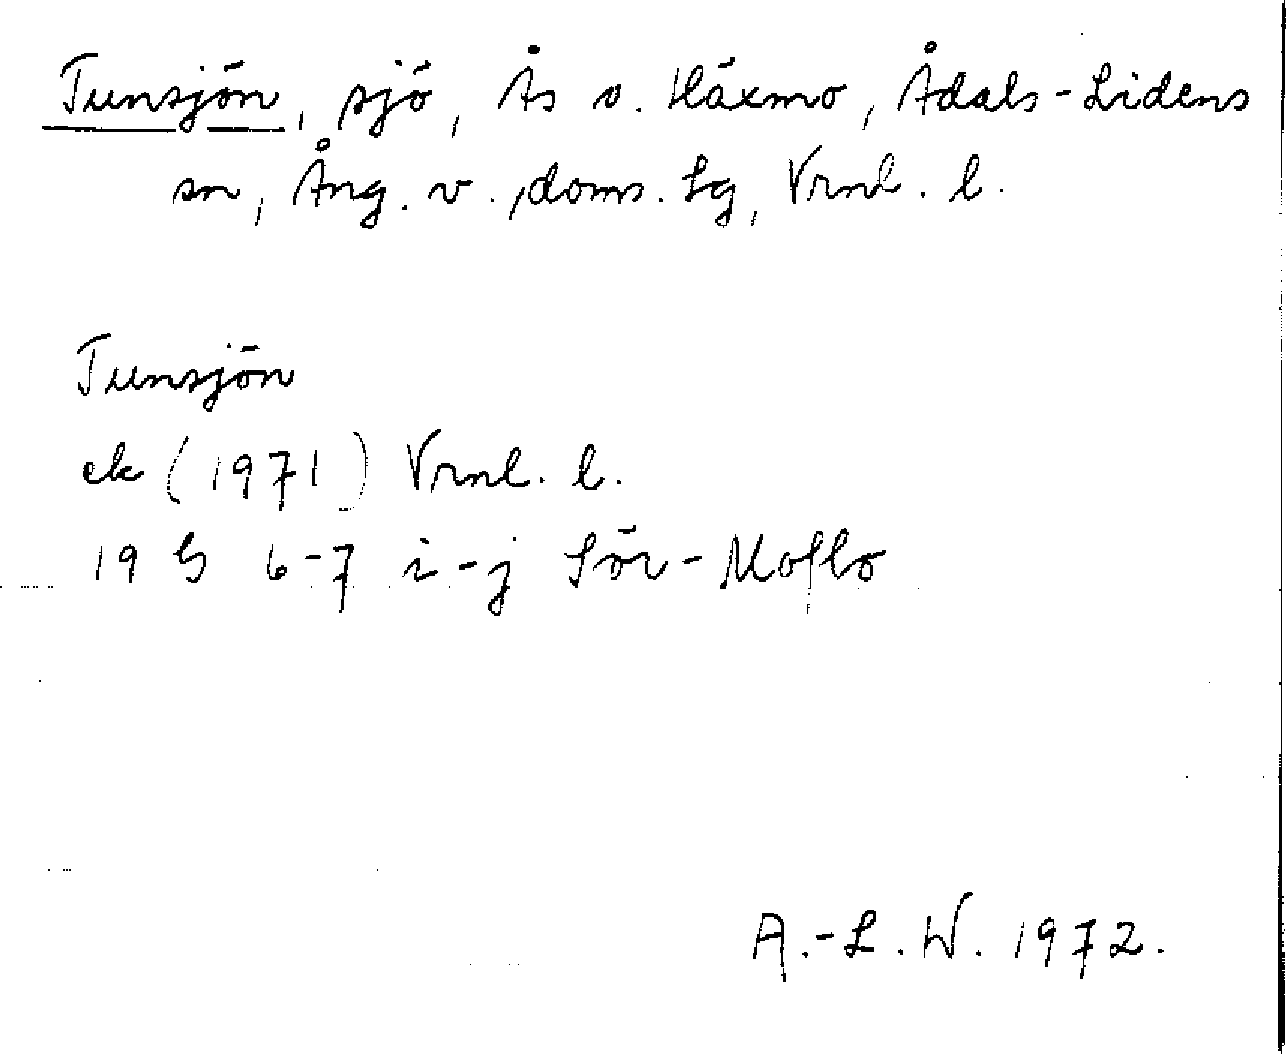 Tunsjön, sjö, Ås o. Häxmo, Ådals-Lidens
sn, Ång. v. doms. lg, Vrnl. l.
Tunsjön
ek (1971) Vrnl. l.
19 G 6-7 i-j Sör-Moflo
A.-L. W. 1972.